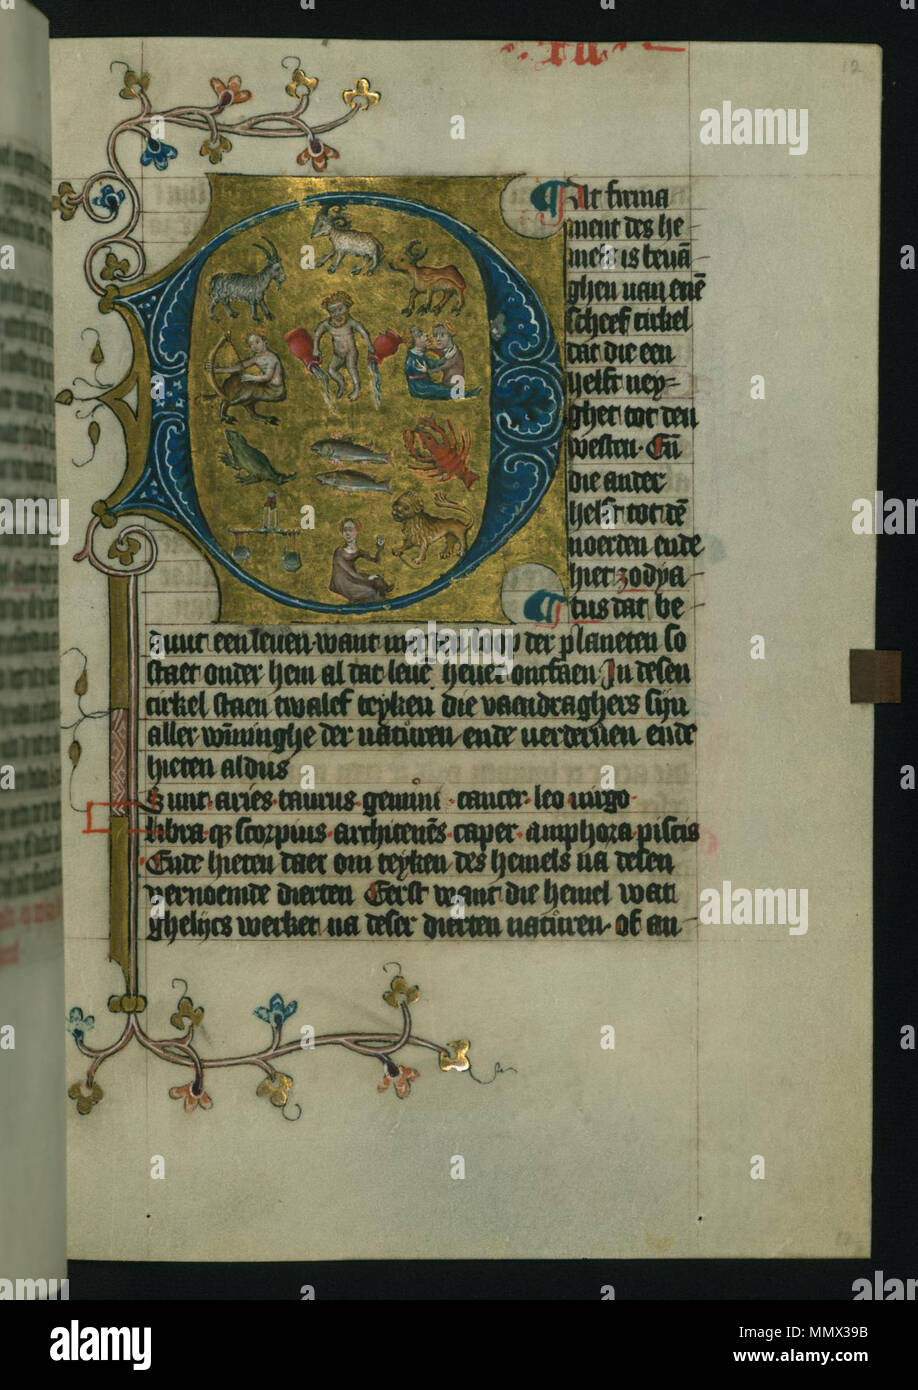 12
at firma
ment des he
mels is bevā-
ghen van enē
scheef cirkel
dat die een
helft ney=
ghet tot den
westen· En̄
die ander
helft tot dē
noerden ende
hiet zodya-
tus dat be-
duut een leven want loop der planeten so
staet onder hem al dat levē hevet ontfaen In desen
cirkel staen twalef teyken die vaendraghers sijn
aller wīninghe der natůren ende verderven ende
hieten aldus
Sunt· aries· taurus· gemini· cancer· leo· virgo·
libra· qȝ scorpius· architenēs· caper· amphora· piscis
Ende hieten daer om teyken des hemels na desen
vernoemde dierten Eerst want die hemel wan
ghelijcs werket na deser dierten natůren· of an-
12
alamy
Image ID: MMX39B
www.alamy.com